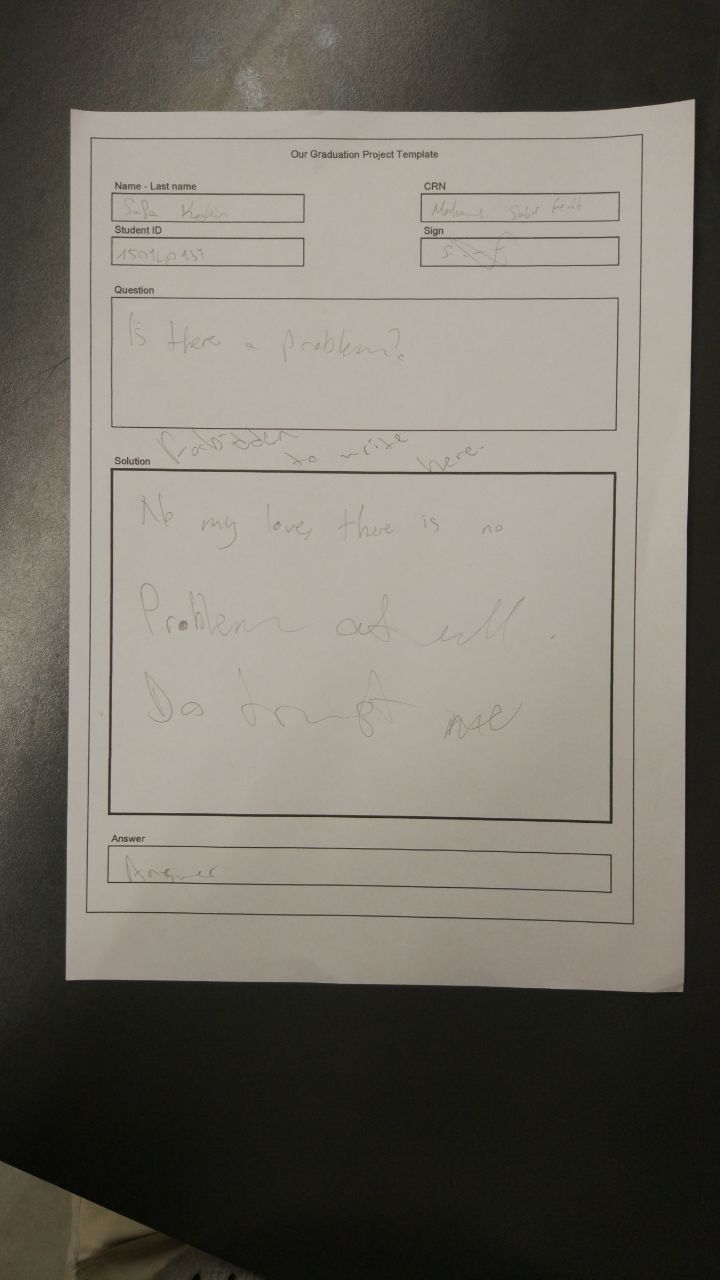 Our Graduation Project Template
Name - Last name
CRN
Safa
Student ID
Sign
Question
Is there a problem?
Forbidden to write here.
Solution
No my love, there is no
Problem at all.
Do trust me
Answer
Answer